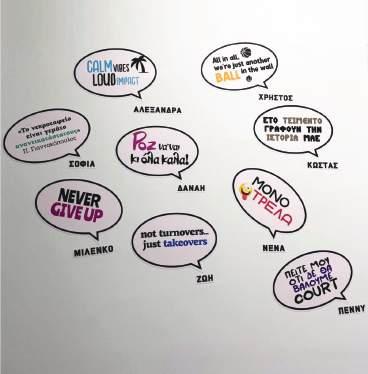 CALM VIBES
LOUD IMPACT
ΑΛΕΞΑΝΔΡΑ
All in all,
we're just another
BALL in the wall
ΧΡΗΣΤΟΣ
«Το νεκροταφείο
είναι γεμάτο
αναντικατάστατους»
Π. Γιαννακόπουλος
ΣΟΦΙΑ
Ροζ να 'ναι
κι όλα καλά!
ΔΑΝΑΗ
ΣΤΟ ΤΣΙΜΕΝΤΟ
ΓΡΑΦΟΥΝ ΤΗΝ
ΙΣΤΟΡΙΑ ΜΑΣ
ΚΩΣΤΑΣ
NEVER
GIVE UP
ΜΙΛΕΝΚΟ
not turnovers..
just takeovers
ΖΩΗ
ΜΟΝΟ
ΤΡΕΛΑ
ΝΕΝΑ
ΠΕΙΤΕ ΜΟΥ
ΟΤΙ ΔΕ ΘΑ
ΒΑΛΟΥΜΕ
COURT
ΠΕΝΝΥ